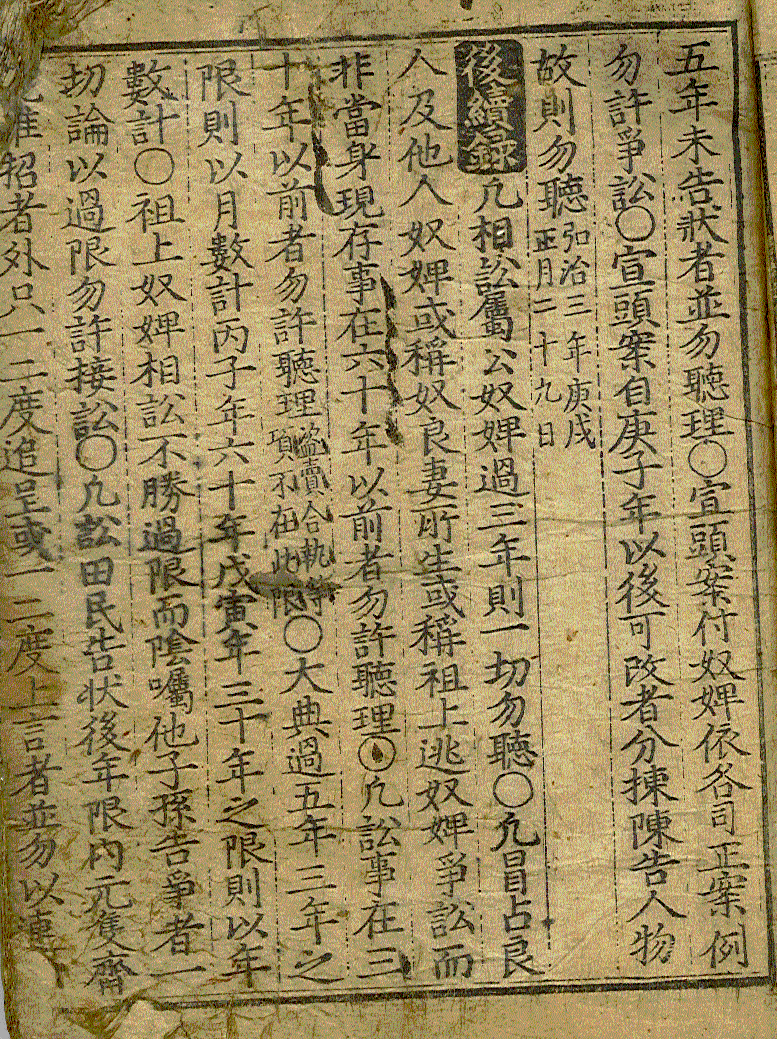 五年未告狀者並勿聽理〇宣頭案付奴婢依各司正案例
勿許爭訟〇宣頭案自庚子年以後可改者分揀陳告人物
故則勿聽弘治三年庚戌正月二十九日
後續錄凡相訟屬公奴婢過三年則一切勿聽〇凡冒占良
人及他人奴婢或稱奴良妻所生或稱祖上逃奴婢爭訟而
非當身現存事在六十年以前者勿許聽理〇凡訟事在三
十年以前者勿許聽理盜賣合執等項不在此限〇大典過五年三年之
限則以月數計丙子年六十年戊寅年三十年之限則以年
數計〇祖上奴婢相訟不勝過限而陰囑他子孫告爭者一
切論以過限勿許接訟〇凡訟田民告狀後年限內元隻齊
推招者外只一二度追呈或一二度上言者並勿以連